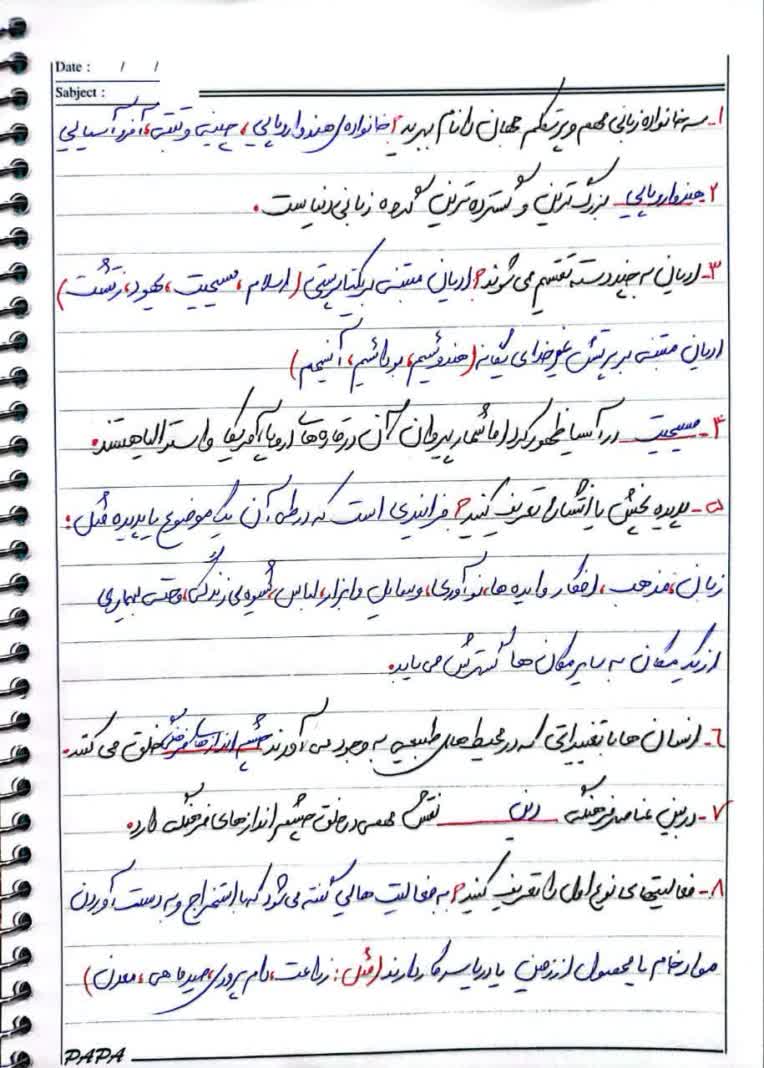 Date :      /      /
Sabject :
۱ـ سه خانواده زبانی مهم و پرتکلم جهان را نام ببرید؟ خانواده ی هندواروپایی، چینی و تبتی، آفروآسیایی
۲ـ هندواروپایی بزرگ ترین و گسترده ترین گروه زبانی دنیاست.
۳ـ ادیان به چند دسته تقسیم می شوند؟ ادیان مبتنی بر یکتاپرستی (اسلام، مسیحیت، یهود، زرتشت)
ادیان مبتنی بر پرستش غیر خدای یگانه (هندوئیسم، بودائیسم، آنیمیسم)
۴ـ مسیحیت در آسیا ظهور کرد اما شمار پیروان آن در قاره ها اروپا، آفریکا و استرالیا هستند.
۵ـ پدیده پخش یا انتشار را تعریف کنید؟ فرایندی است که در طی آن یک موضوع یا پدیده مثل:
زبان، مذهب، افکار و ایده ها، نوآوری، وسایل و ابزار، لباس، شیوه ی زندگی، و حتی بیماری
از یک مکان به سایر مکان ها گسترش می یابد.
۶ـ انسان ها با تغییراتی که در محیط های طبیعی به وجود می آورند چشم اندازهای فرهنگی خلق می کنند.
۷ـ در بین عناصر فرهنگی دین نقش مهمی در خلق چشم اندازهای فرهنگی دارد.
۸ـ فعالیتهای نوع اول را تعریف کنید؟ به فعالیت هایی گفته می شود که با استخراج و به دست آوردن
مواد خام یا محصول از زمین یا دریا سر و کار دارند (مثل: زراعت، دام پروری، صید ماهی، معدن)
PAPA